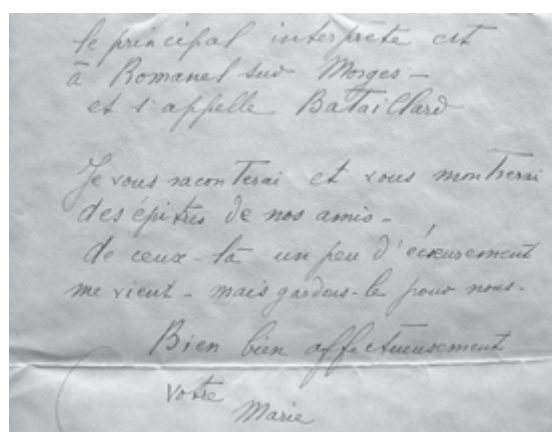 le principal interprète est
à Romanel sur Morges -
et s'appelle Bataillard
Je vous raconterai et vous montrerai
des épitres de nos amis -
de ceux-là un peu d'écœurement
me vient - mais gardons-le pour nous -
Bien bien affectueusement
Votre
Marie